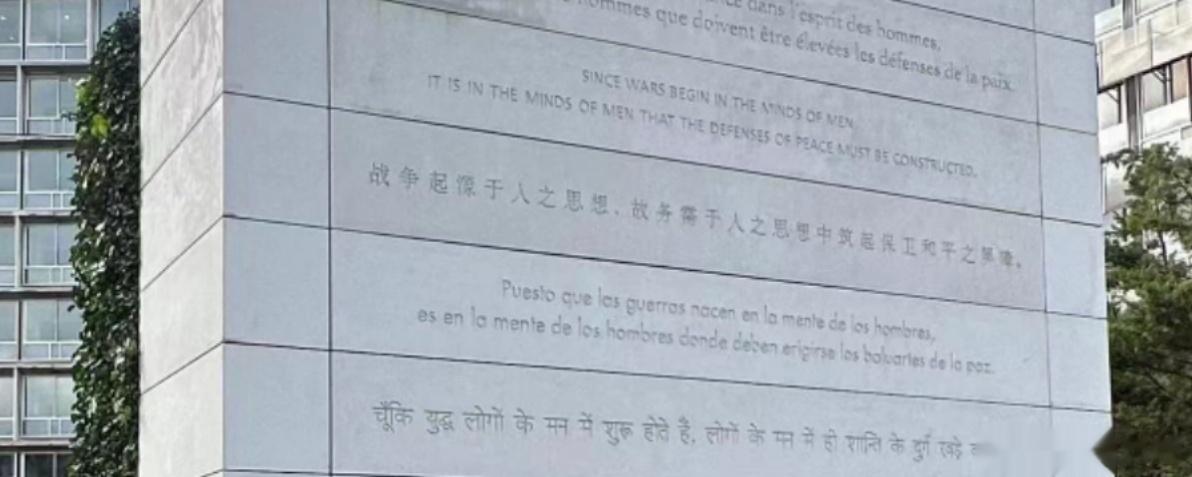 dans l'esprit des hommes,
hommes que doivent être élevées les défenses de la paix.
SINCE WARS BEGIN IN THE MINDS OF MEN,
IT IS IN THE MINDS OF MEN THAT THE DEFENSES OF PEACE MUST BE CONSTRUCTED.
战争起源于人之思想，故务需于人之思想中筑起保卫和平之屏障。
Puesto que las guerras nacen en la mente de los hombres,
es en la mente de los hombres donde deben erigirse los baluartes de la paz.
चूँकि युद्ध लोगों के मन में शुरू होते हैं, लोगों के मन में ही शान्ति के दुर्ग खड़े